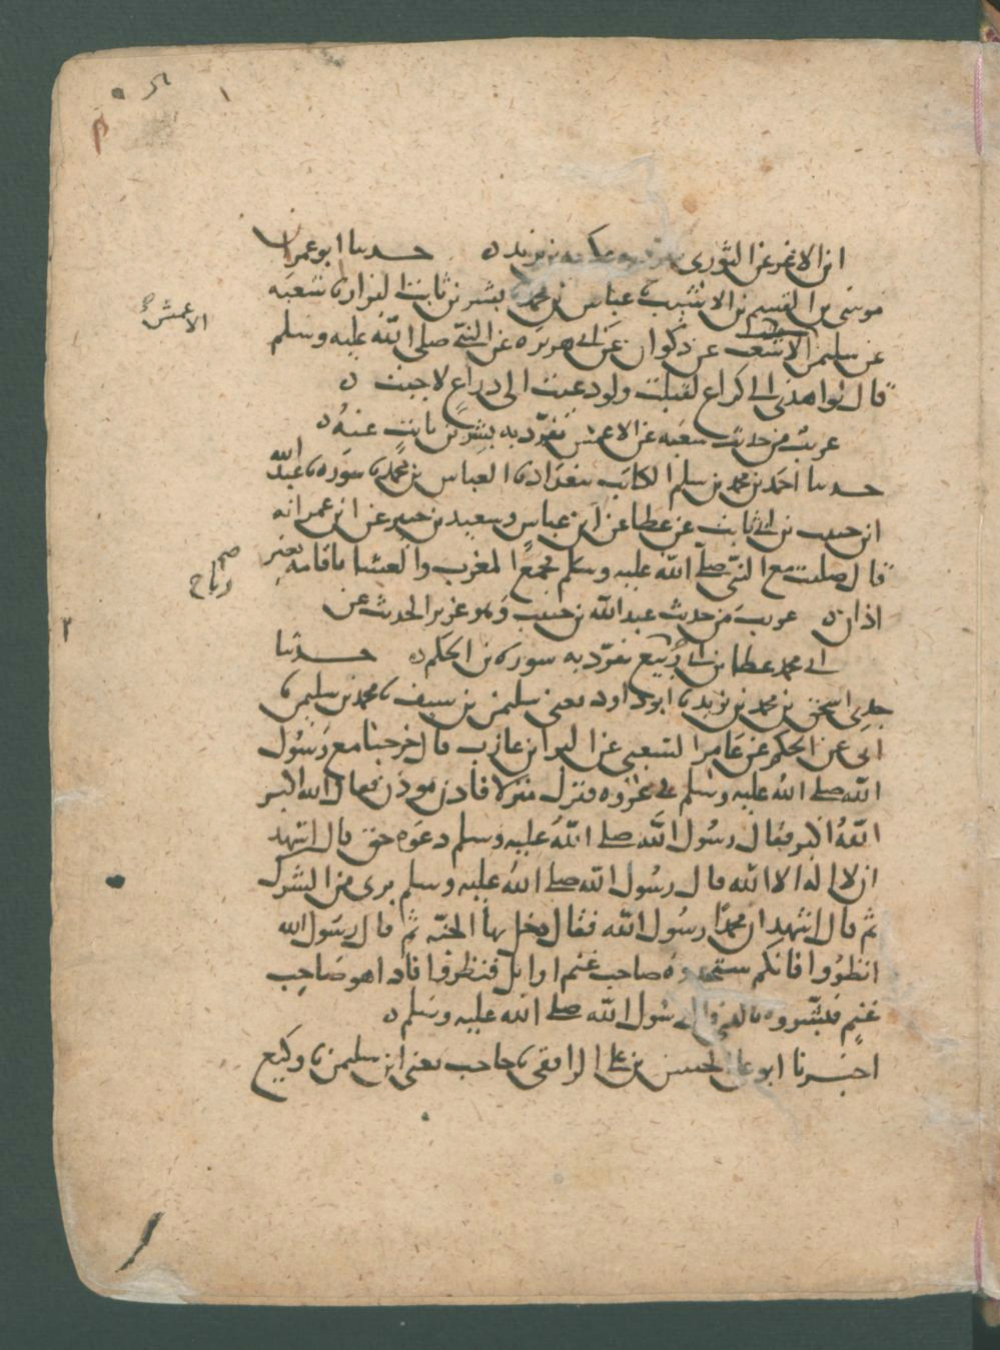 ابن الاغر عن الثوري يزيد حدثنا ابو عمران
موسى بن القسم بن الاشيب عباس بن محمد بشر بن ثابت البزار نا شعبة
عن سليمن الاشعث عن ذكوان عن ابي هريرة عن النبي صلى الله عليه وسلم
الاعمش
قال لو اهدي الي كراع لقبلت ولو دعيت الى ذراع لاجبت
غريب من حديث شعبة عن الاعمش تفرد به بشر بن ثابت عنه
حدثنا احمد بن محمد بن سلم الكاتب ببغداد نا العباس بن محمد نا سورة نا عبد الله
ابن حبيب بن ابي ثابت عن عطا عن ابن عباس وسعيد بن جبير عن ابن عمر انه
قال صليت مع النبي صلى الله عليه وسلم فجمع المغرب والعشا باقامة بغير
صح
رباح
اذان غريب من حديث عبد الله بن حبيب وهو عزيز الحديث عن
ابي محمد عطا بن ابي تفرد به سورة بن الحكم حدثنا
جدي اسحق بن محمد بن يزيد نا ابو داود يعني سليمن بن سيف نا محمد بن سليمن نا
ابي عن الحكم عن عامر الشعبي عن البرا بن عازب قال خرجنا مع رسول
الله صلى الله عليه وسلم في غزوه فنزل منزلا فاذن موذن فقال الله اكبر
الله اكبر فقال رسول الله صلى الله عليه وسلم دعوه حق قال اشهد
ان لا اله الا الله قال رسول الله صلى الله عليه وسلم بري من الشرك
ثم قال اشهد ان محمدا رسول الله فقال دخل بها الجنة ثم قال رسول الله
انظروا فانكم صاحب غنم فنظروا فاذا هو صاحب
غنم فبشروه رسول الله صلى الله عليه وسلم
اخبرنا ابو علي الحسن بن علي الرافقي نا حاجب يعني ابن سليمن نا وكيع